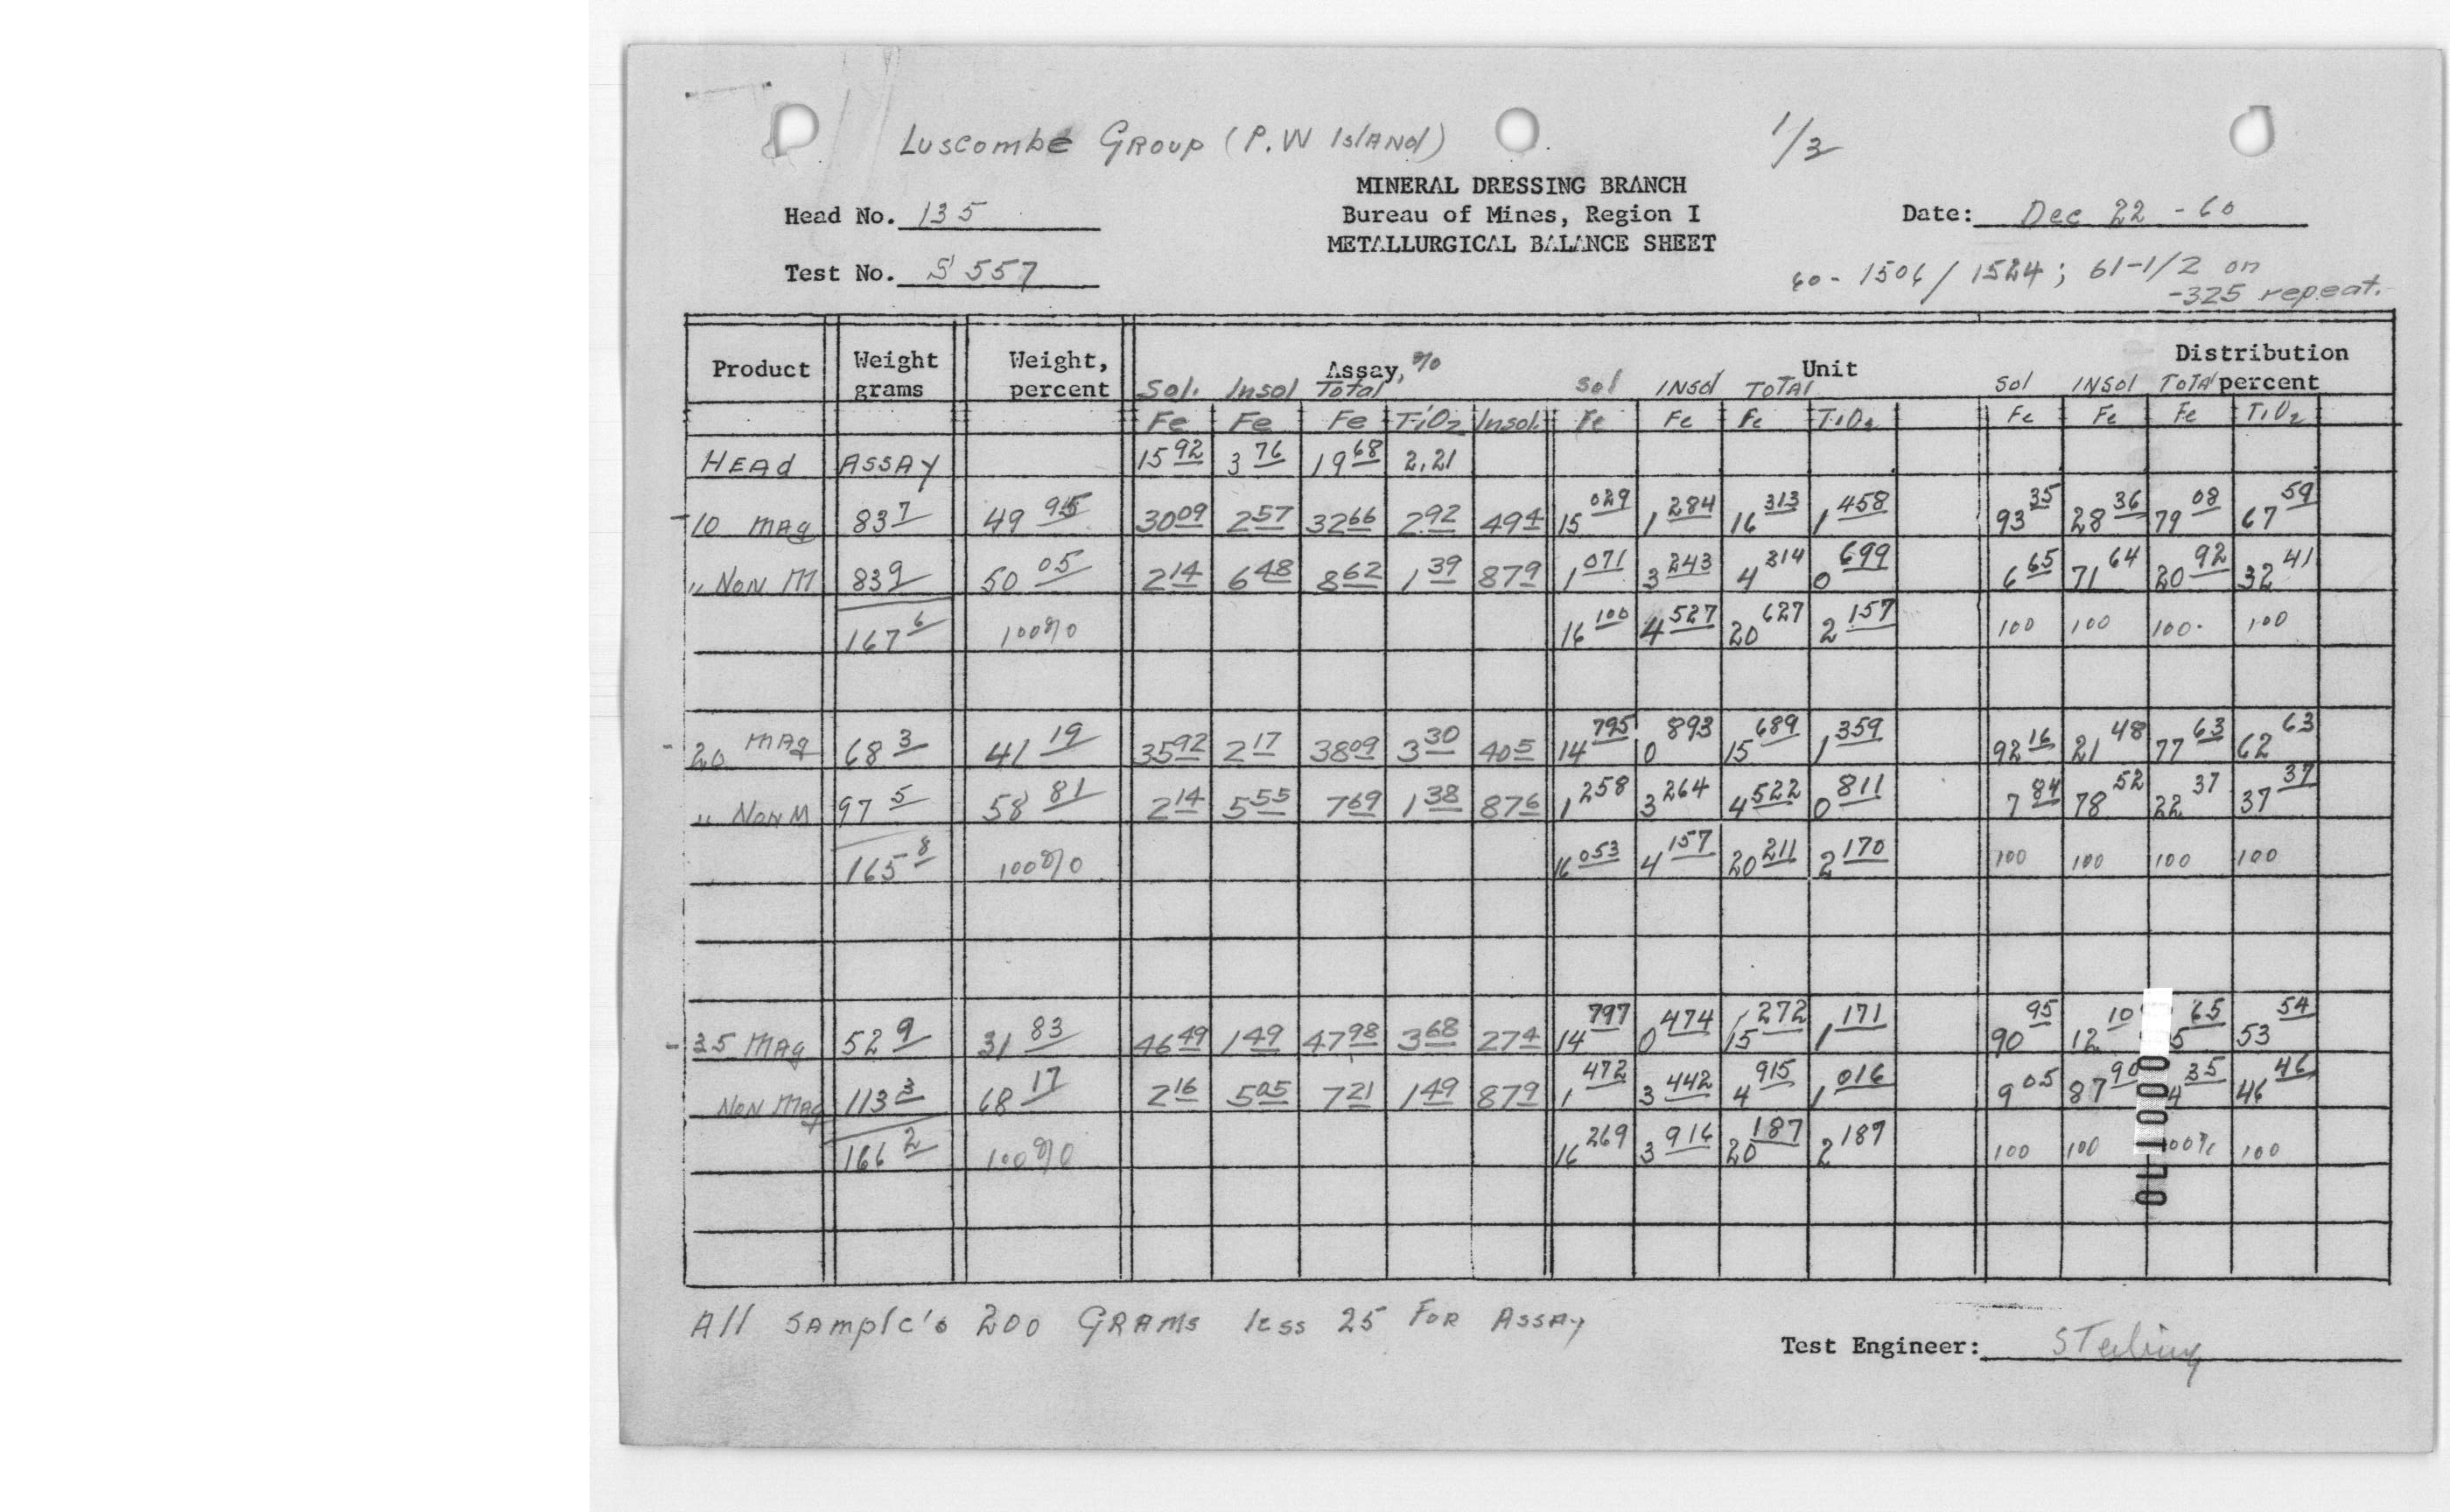 Luscombe Group (P.W Island) 1/3
MINERAL DRESSING BRANCH
Head No. 135 Bureau of Mines, Region I Date: Dec 22 - 60
METALLURGICAL BALANCE SHEET
Test No. S 557 60 - 1506 / 1524 ; 61-1/2 on
-325 repeat.
Product Weight grams Weight, percent Assay, % Unit Distribution percent
Sol. Insol Total Sol INSol TOTAl Sol INSol TOTAl
Fe Fe Fe TiO2 Insol. Fe Fe Fe TiO2 Fe Fe Fe TiO2
HEAd ASSAY 15 92 3 76 19 68 2.21
-10 mag 83 7 49 95 30 09 2 57 32 66 2 92 49 4 15 029 1 284 16 313 1 458 93 35 28 36 79 08 67 59
" Non M 83 9 50 05 2 14 6 48 8 62 1 39 87 9 1 071 3 243 4 314 0 699 6 65 71 64 20 92 32 41
167 6 100% 16 100 4 527 20 627 2 157 100 100 100. 100
-20 mag 68 3 41 19 35 92 2 17 38 09 3 30 40 5 14 795 0 893 15 689 1 359 92 16 21 48 77 63 62 63
" Non M 97 5 58 81 2 14 5 55 7 69 1 38 87 6 1 258 3 264 4 522 0 811 7 84 78 52 22 37 37 37
165 8 100% 16 053 4 157 20 211 2 170 100 100 100 100
-35 Mag 52 9 31 83 46 49 1 49 47 98 3 68 27 4 14 797 0 474 15 272 1 171 90 95 12 10 5 65 53 54
Non Mag 113 3 68 17 2 16 5 05 7 21 1 49 87 9 1 472 3 442 4 915 1 016 9 05 87 90 4 35 46 46
166 2 100% 16 269 3 916 20 187 2 187 100 100 100% 100
All sample's 200 GRAMs less 25 FOR ASSAY
Test Engineer: Sterling